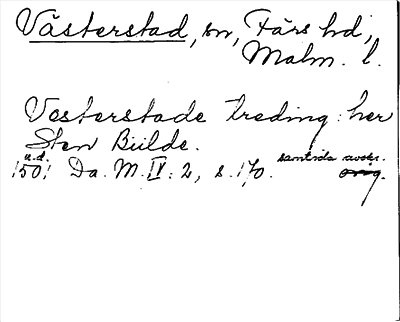 Västerstad, sn, Färs hd,
Malm. l.
Vesterstade treding: her
Sten Biilde.
u.d. samtida avskr.
1501 Da. M. IV: 2, s. 170. orig.